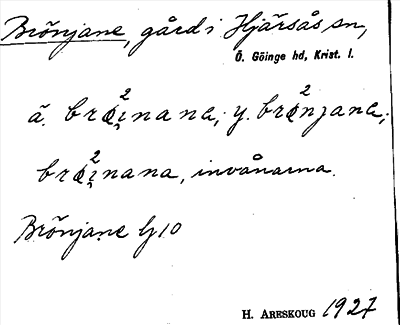 Brönjane, gård i Hjärsås sn,
Ö. Göinge hd, Krist. l.
ä. brøi̯²nana; y. brø²njana;
brøi̯²nana, invånarna.
Brönjane G10
H. Areskoug 1927